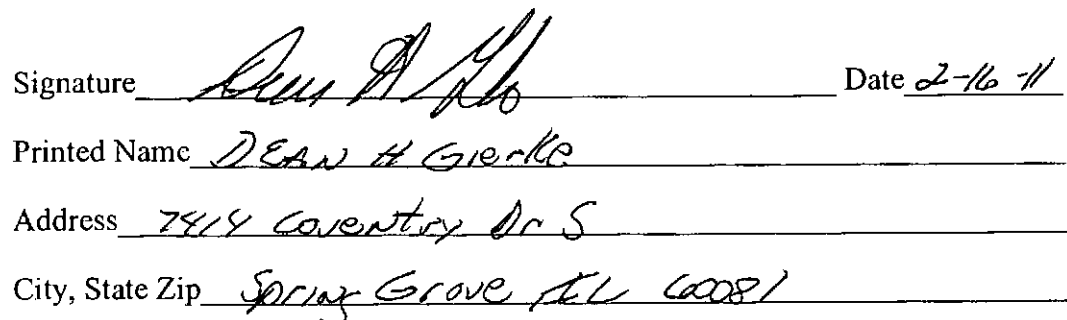 Signature Dean H Gierke Date 2-16-11
Printed Name DEAN H Gierke
Address 7414 Coventry Dr S
City, State Zip Spring Grove IL 60081